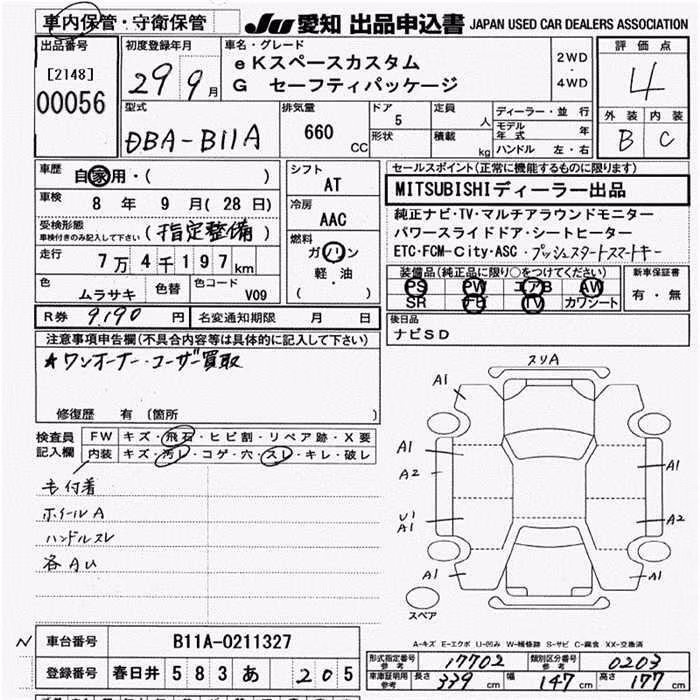 車内保管・守衛保管
JU 愛知 出品申込書 JAPAN USED CAR DEALERS ASSOCIATION
出品番号
[2148]
00056
初度登録年月
29 9月
車名・グレード
eKスペースカスタム
G セーフティパッケージ
2WD
・
4WD
評価点
4
外装 内装
B C
型式
DBA-B11A
排気量
660 CC
ドア
5
形状
定員
人
積載
kg
ディーラー・並行
モデル年式 年
ハンドル 左・右
車歴
自家用・( )
車検
8年 9月(28日)
受検形態
車検付きのみ記入して下さい
(指定整備)
走行
7万4千197km
色
ムラサキ
色替
色コード
V09
シフト
AT
冷房
AAC
燃料
ガソリン
軽・油
( )
セールスポイント(正常に機能するものに限ります)
MITSUBISHIディーラー出品
純正ナビ・TV・マルチアラウンドモニター
パワースライドドア・シートヒーター
ETC・FCM-City・ASC・プッシュスタートスマートキー
装備品(純正品に限り○をつけてください)
PS PW エアB AW
SR ナビ TV カワシート
新車保証書
有・無
R券 9,190円
名変通知期限 月 日
後日品
ナビSD
注意事項申告欄(不具合内容等は具体的に記入して下さい)
★ワンオーナー・ユーザー買取
修復歴 有 (箇所 )
検査員
記入欄
FW キズ・飛石・ヒビ割・リペア跡・X要
内装 キズ・汚レ・コゲ・穴・スレ・キレ・破レ
毛付着
ホイールA
ハンドルスレ
各AU
スリA
A1
A1
A2
U1
A1
A1
A1
A2
A1
スペア
A-キズ E-エクボ U-凹み W-補修跡 S-サビ C-腐食 XX-交換済
N
車台番号
B11A-0211327
登録番号
春日井 583 あ 205
形式指定番号
参考
17702
類別区分番号
参考
0203
車庫証明用
参考
長さ 339 cm 幅 147 cm 高さ 177 cm